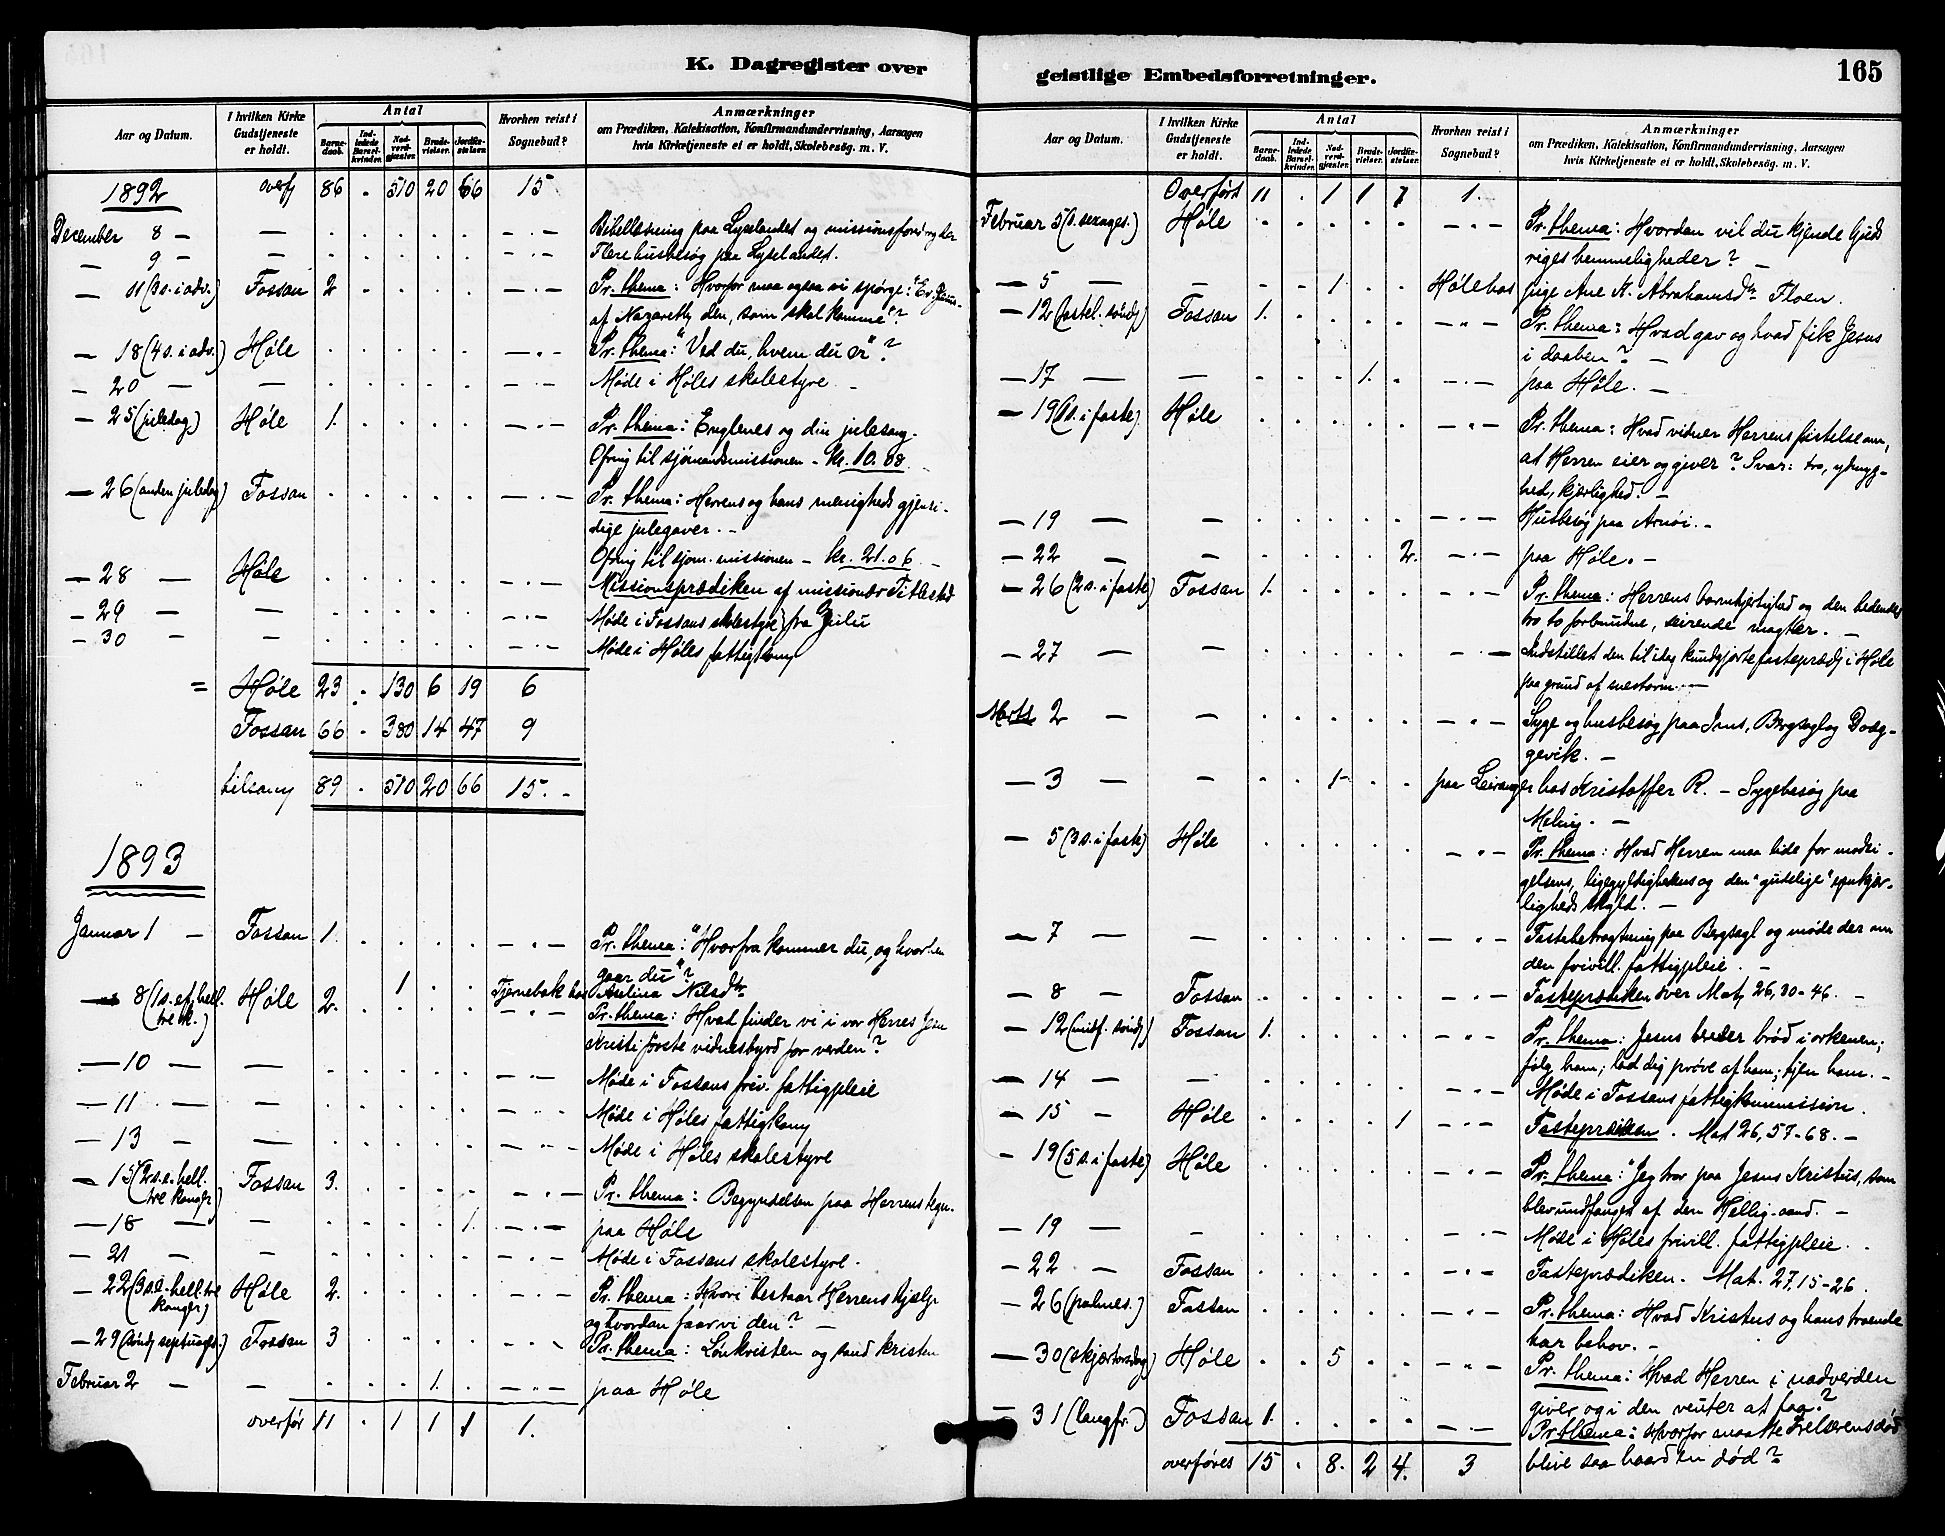 K. Dagregister over
Aar og Datum.
I hvilken Kirke Gudstjeneste er holdt.
Antal
Barne-daab.
Ind-ledede Barsel-kvinder.
Nad-verd-gjæster.
Brude-vielser.
Jordfæ-stelser.
Hvorhen reist i Sognebud?
Anmærkninger
om Prædiken, Katekisation, Konfirmandundervisning, Aarsagen
hvis Kirketjeneste ei er holdt, Skolebesög. m. V.
1892 overf 86 . 510 20 66 15
December 8 — — . . . . . — . — Bibellesning paa Lyselandet og missionsforedrag der
— 9 — — . . . . . — . — Flere husbesøg paa Lyselandet.
— 11 (3 s. i adv.) Fossan 2 . . . . — . — Pr. thema: Hvorfor maa ogsaa vi spørge: "Er Jesus
af Nazareth den, som skal komme"?
— 18 (4 s. i adv.) Høle . . . . . — . — Pr. thema: "Ved du, hvem du er"?
— 20 — — . . . . . — . — Møde i Høles skolestyre —
— 25 (juledag) Høle 1. . . . . — . — Pr. thema: Englenes og din julesang.
Ofring til sjømandsmissionen - kr. 10.08
— 26 (anden juledag) Fossan . . . . . — . — Pr. thema: Herrens og hans menigheds gjensi-
dige julegaver. —
Ofring til sjøm. missionen - kr. 21.06 —
— 28 — Høle . . . . . — . — Missionsprædiken af missionær Titlestad
— 29 — — . . . . . — . — Møde i Fossans skolestyre) fra Zulu
— 30 — — . . . . . — . — Møde i Høles fattigkom
= Høle 23 . 130 6 19 6
Fossan 66 . 380 14 47 9
tilsam 89 . 510 20 66 15. -
1893
Januar 1 — Fossan 1. . . . . — . — Pr. thema: "Hvorfra kommer du, og hvorhen
gaar du"?
— 8 (1 s. ef. hell. tre k.) Høle 2. . 1 . . Tjernebak hos Aselina Nilsdtr
— . — Pr. thema: Hvad finder vi i vor Herres Jesu
Kristi første vidnesbyrd for verden?
— 10 — — . . . . . — . — Møde i Fossans friv. fattigpleie
— 11 — — . . . . . — . — Møde i Høles fattigkom
— 13 — — . . . . . — . — Møde i Høles skolestyre
— 15 (2 s. e. hell. tre konger) Fossan 3. . . . . — . — Pr. thema: Begyndelsen paa Herrens tegn.
— 18 — — . . . . 1. — . — paa Høle
— 21 — — . . . . . — . — Møde i Fossans skolestyre.
— 22 (3 s. e. hell. tre konger) Høle 2. . . . . — . — Pr. thema: Hvori bestaar Herrens hjælp
og hvordan faar vi den? —
— 29 (sønd septuages.) Fossan 3 . . . . — . — Pr. thema: Lønkristen og sand kristen
Februar 2 — — . . . 1. . — . — paa Høle
overfør 11 . 1 1 1 1.
geistlige Embedsforretninger.
165
Aar og Datum.
I hvilken Kirke Gudstjeneste er holdt.
Antal
Barne-daab.
Ind-ledede Barsel-kvinder.
Nad-verd-gjæster.
Brude-vielser.
Jordfæ-stelser.
Hvorhen reist i Sognebud?
Anmærkninger
om Prædiken, Katekisation, Konfirmandundervisning, Aarsagen
hvis Kirketjeneste ei er holdt, Skolebesög. m. V.
Overført 11 . 1 1 1 1.
Februar 5 (s. sexages.) Høle . . . . . — . — Pr. thema: Hvordan vil du kjende Guds
riges hemmeligheder? —
— 5 — — . . 1. . . Høle hos pige Ane K. Abrahamsdtr Floen.
— 12 (fastel. sønd) Fossan 1. . . . . — . — Pr. thema: Hvad gav og hvad fik Jesus
i daaben? —
— 17 — — . . . 1. . — . — paa Høle. —
— 19 (1 s. i faste) Høle . . . . . — . — Pr. thema: Hvad vidner Herrens fristelse om,
at Herren eier og giver? Svar: tro, ydmyg-
hed, kjærlighed. —
— 19 — — . . . . . — . — Husbesøg paa Arnøi. —
— 22 — — . . . . 2. — . — paa Høle. —
— 26 (2 s. i faste) Fossan 1. . . . . — . — Pr. thema: Herrens barmhjertighed og den bedendes
tro to forbundne, seirende magter. —
— 27 — — . . . . . — . — Indstillet den til idag kundgjorte fasteprædik i Høle
paa grund af snestorm. —
Marts 2 — — . . . . . — . — Syge og husbesøg paa Ims, Bergsagl og Dreg-
gevik. —
— 3 — — . . 1. . . paa Leiranger hos Kristoffer R. — Sygebesøg paa
Meling. —
— 5 (3 s. i faste) Høle . . . . . — . — Pr. thema: Hvad Herren maa lide for modsi-
gelsens, ligegyldighedens og den "gudelige" egenkjær-
ligheds skyld. —
— 7 — — . . . . . — . — Fastebetragtning paa Bergsagl og møde der om
den frivill. fattigpleie. —
— 8 — Fossan . . . . . — . — Fasteprædiken over Mat, 26, 30-46. —
— 12 (midf. sønd.) Fossan 1. . . . . — . — Pr. thema: Jesus breder brød i ørkenen;
følg ham; lad dig prøve af ham; tjen ham. —
— 14 — — . . . . . — . — Møde i Fossans fattigkommission.
— 15 — Høle . . . . 1 — . — Fasteprædiken. Mat 26, 57-68. —
— 19 (5 s. i faste) Høle . . . . . — . — Pr. thema: "Jeg tror paa Jesus Kristus, som
blev undfanget af den Hellig-aand. —
— 19 — — . . . . . — . — Møde i Høles frivill. fattigpleie. .
— 22 — Fossan . . . . . — . — Fasteprædiken. Mat. 27, 15-26.
— 26 (palmes.) Fossan . . . . . — . — Pr. thema: Hvad Kristus og hans troende
har behov. —
— 30 (skjærtorsdag) Høle . . 5 . . — . — Pr. thema: Hvad Herren i nadverden
giver og i den venter at faa?
— 31 (langfr.) Fossan 1. . . . . — . — Pr thema: Hvorfor maatte Frelserens død
blive saa haard en død?
overføres 15 . 8. 2 4. 3